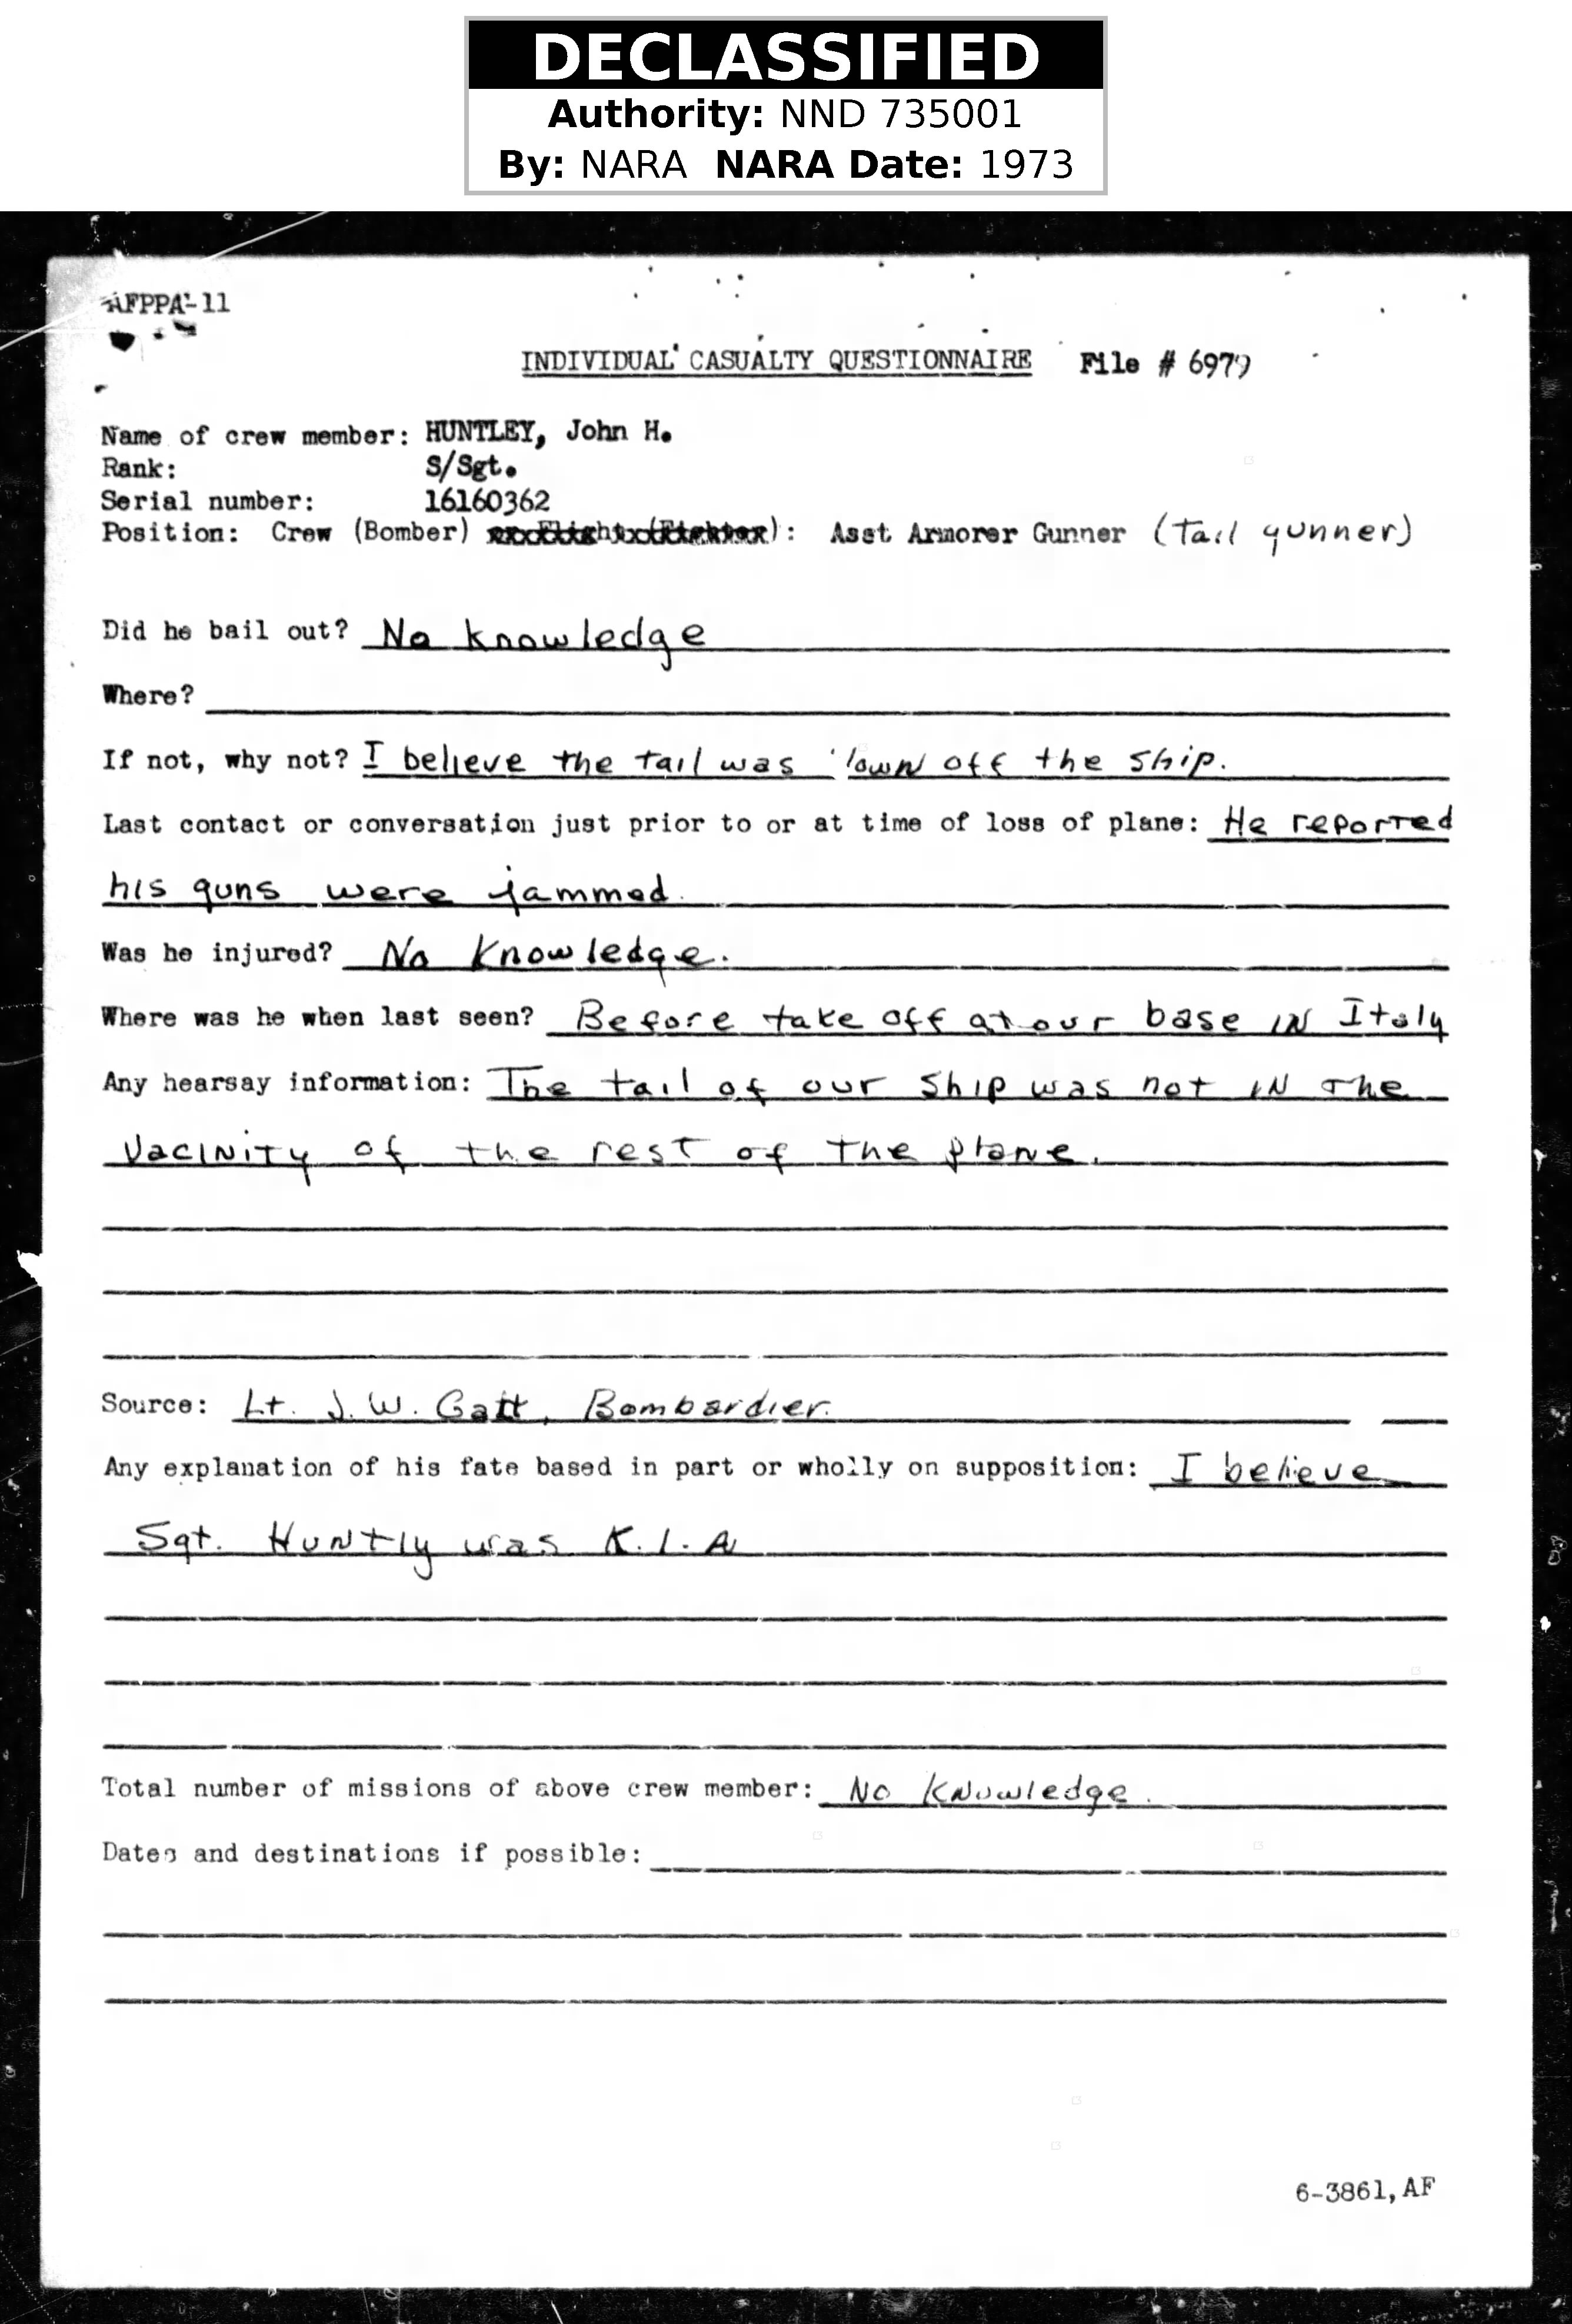 DECLASSIFIED
Authority: NND 735001
By: NARA NARA Date: 1973
AFPPA-11
INDIVIDUAL CASUALTY QUESTIONNAIRE File # 6979
Name of crew member: HUNTLEY, John H.
Rank: S/Sgt.
Serial number: 16160362
Position: Crew (Bomber) : Asst Armorer Gunner (Tail gunner)
Did he bail out? No knowledge
Where?
If not, why not? I believe the tail was off the ship.
Last contact or conversation just prior to or at time of loss of plane: He reported
his guns were jammed.
Was he injured? No Knowledge.
Where was he when last seen? Before take off at our base IN Italy
Any hearsay information: The tail of our ship was not IN the
VacINity of the rest of the plane.
Source: Lt. J. W. Gatt, Bombardier.
Any explanation of his fate based in part or wholly on supposition: I believe
Sgt. Huntly was K.I.A
Total number of missions of above crew member: No Knowledge.
Dates and destinations if possible:
6-3861, AF